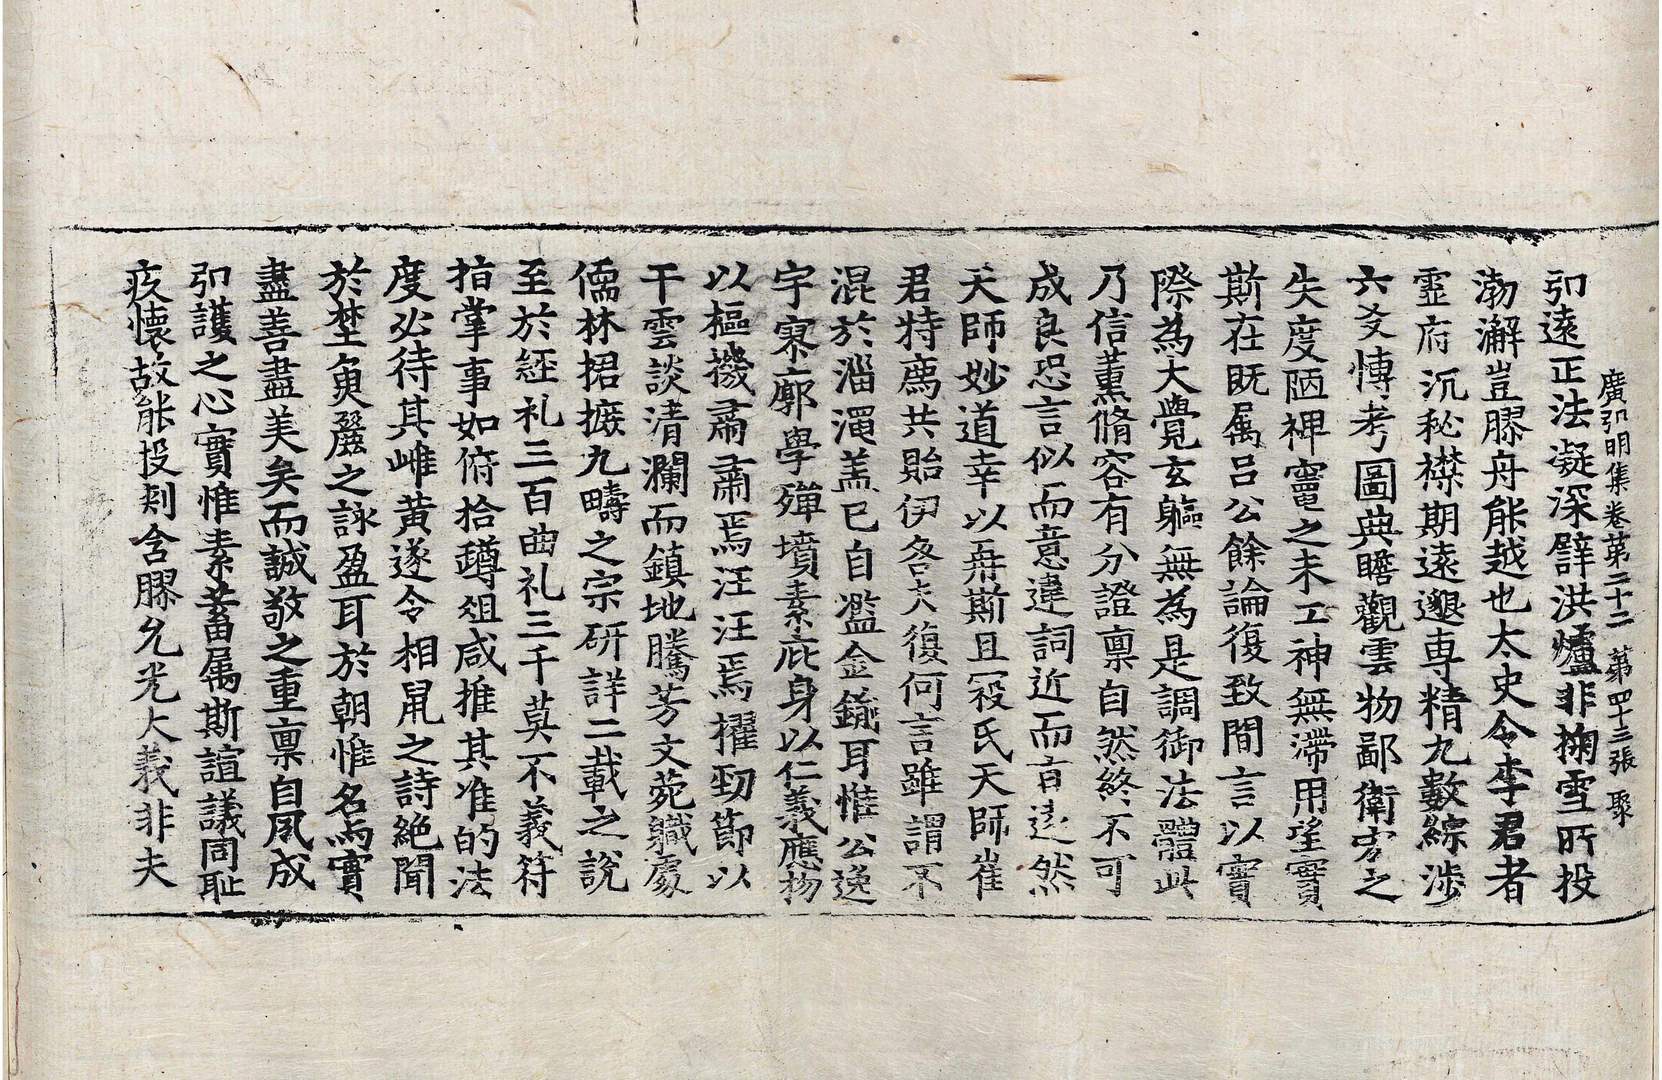 廣弘明集卷第二十二 第四十三張 聚
弘遠正法凝深辟洪爐非掬雪所投
渤澥豈膠舟能越也太史令李君者
靈府沉秘襟期遠邈專精九數綜涉
六爻博考圖典瞻觀雲物鄙衛宏之
失度陋裨竈之未工神無滯用望實
斯在既属呂公餘論復致間言以實
際為大覺玄軀無為是調御法體此
乃信薰脩容有分證禀自然終不可
成良恐言似而意違詞近而旨遠然
天師妙道幸以再斯且寇氏天師崔
君特薦共貽伊咎夫復何言雖謂不
混於淄澠盖已自濫金鍮耳惟公逸
宇寥廓學殫墳素庇身以仁義應物
以樞機肅肅焉汪汪焉擢勁節以
干雲談清瀾而鎮地騰芳文菀職處
儒林捃摭九疇之宗研詳二載之說
至於經礼三百曲礼三千莫不義符
指掌事如俯拾蹲俎咸推其准的法
度必待其雌黄遂令相鼠之詩絕聞
於埜魚麗之詠盈耳於朝惟名與實
盡善盡美矣而誠敬之重禀自夙成
弘護之心實惟素蓄属斯誼議同耻
疚懷故能投刺含膠允光大義非夫